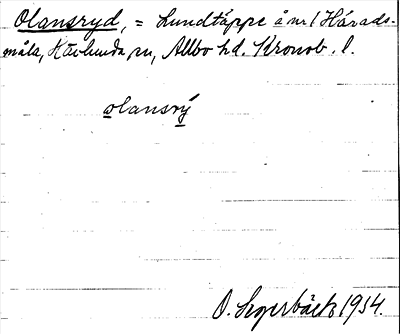 Olansryd, = Lundtäppe å nr 1 Härads-
måla, Härlunda sn, Allbo hd. Kronob. l.
olansrý
O. Segerbäck 1934.